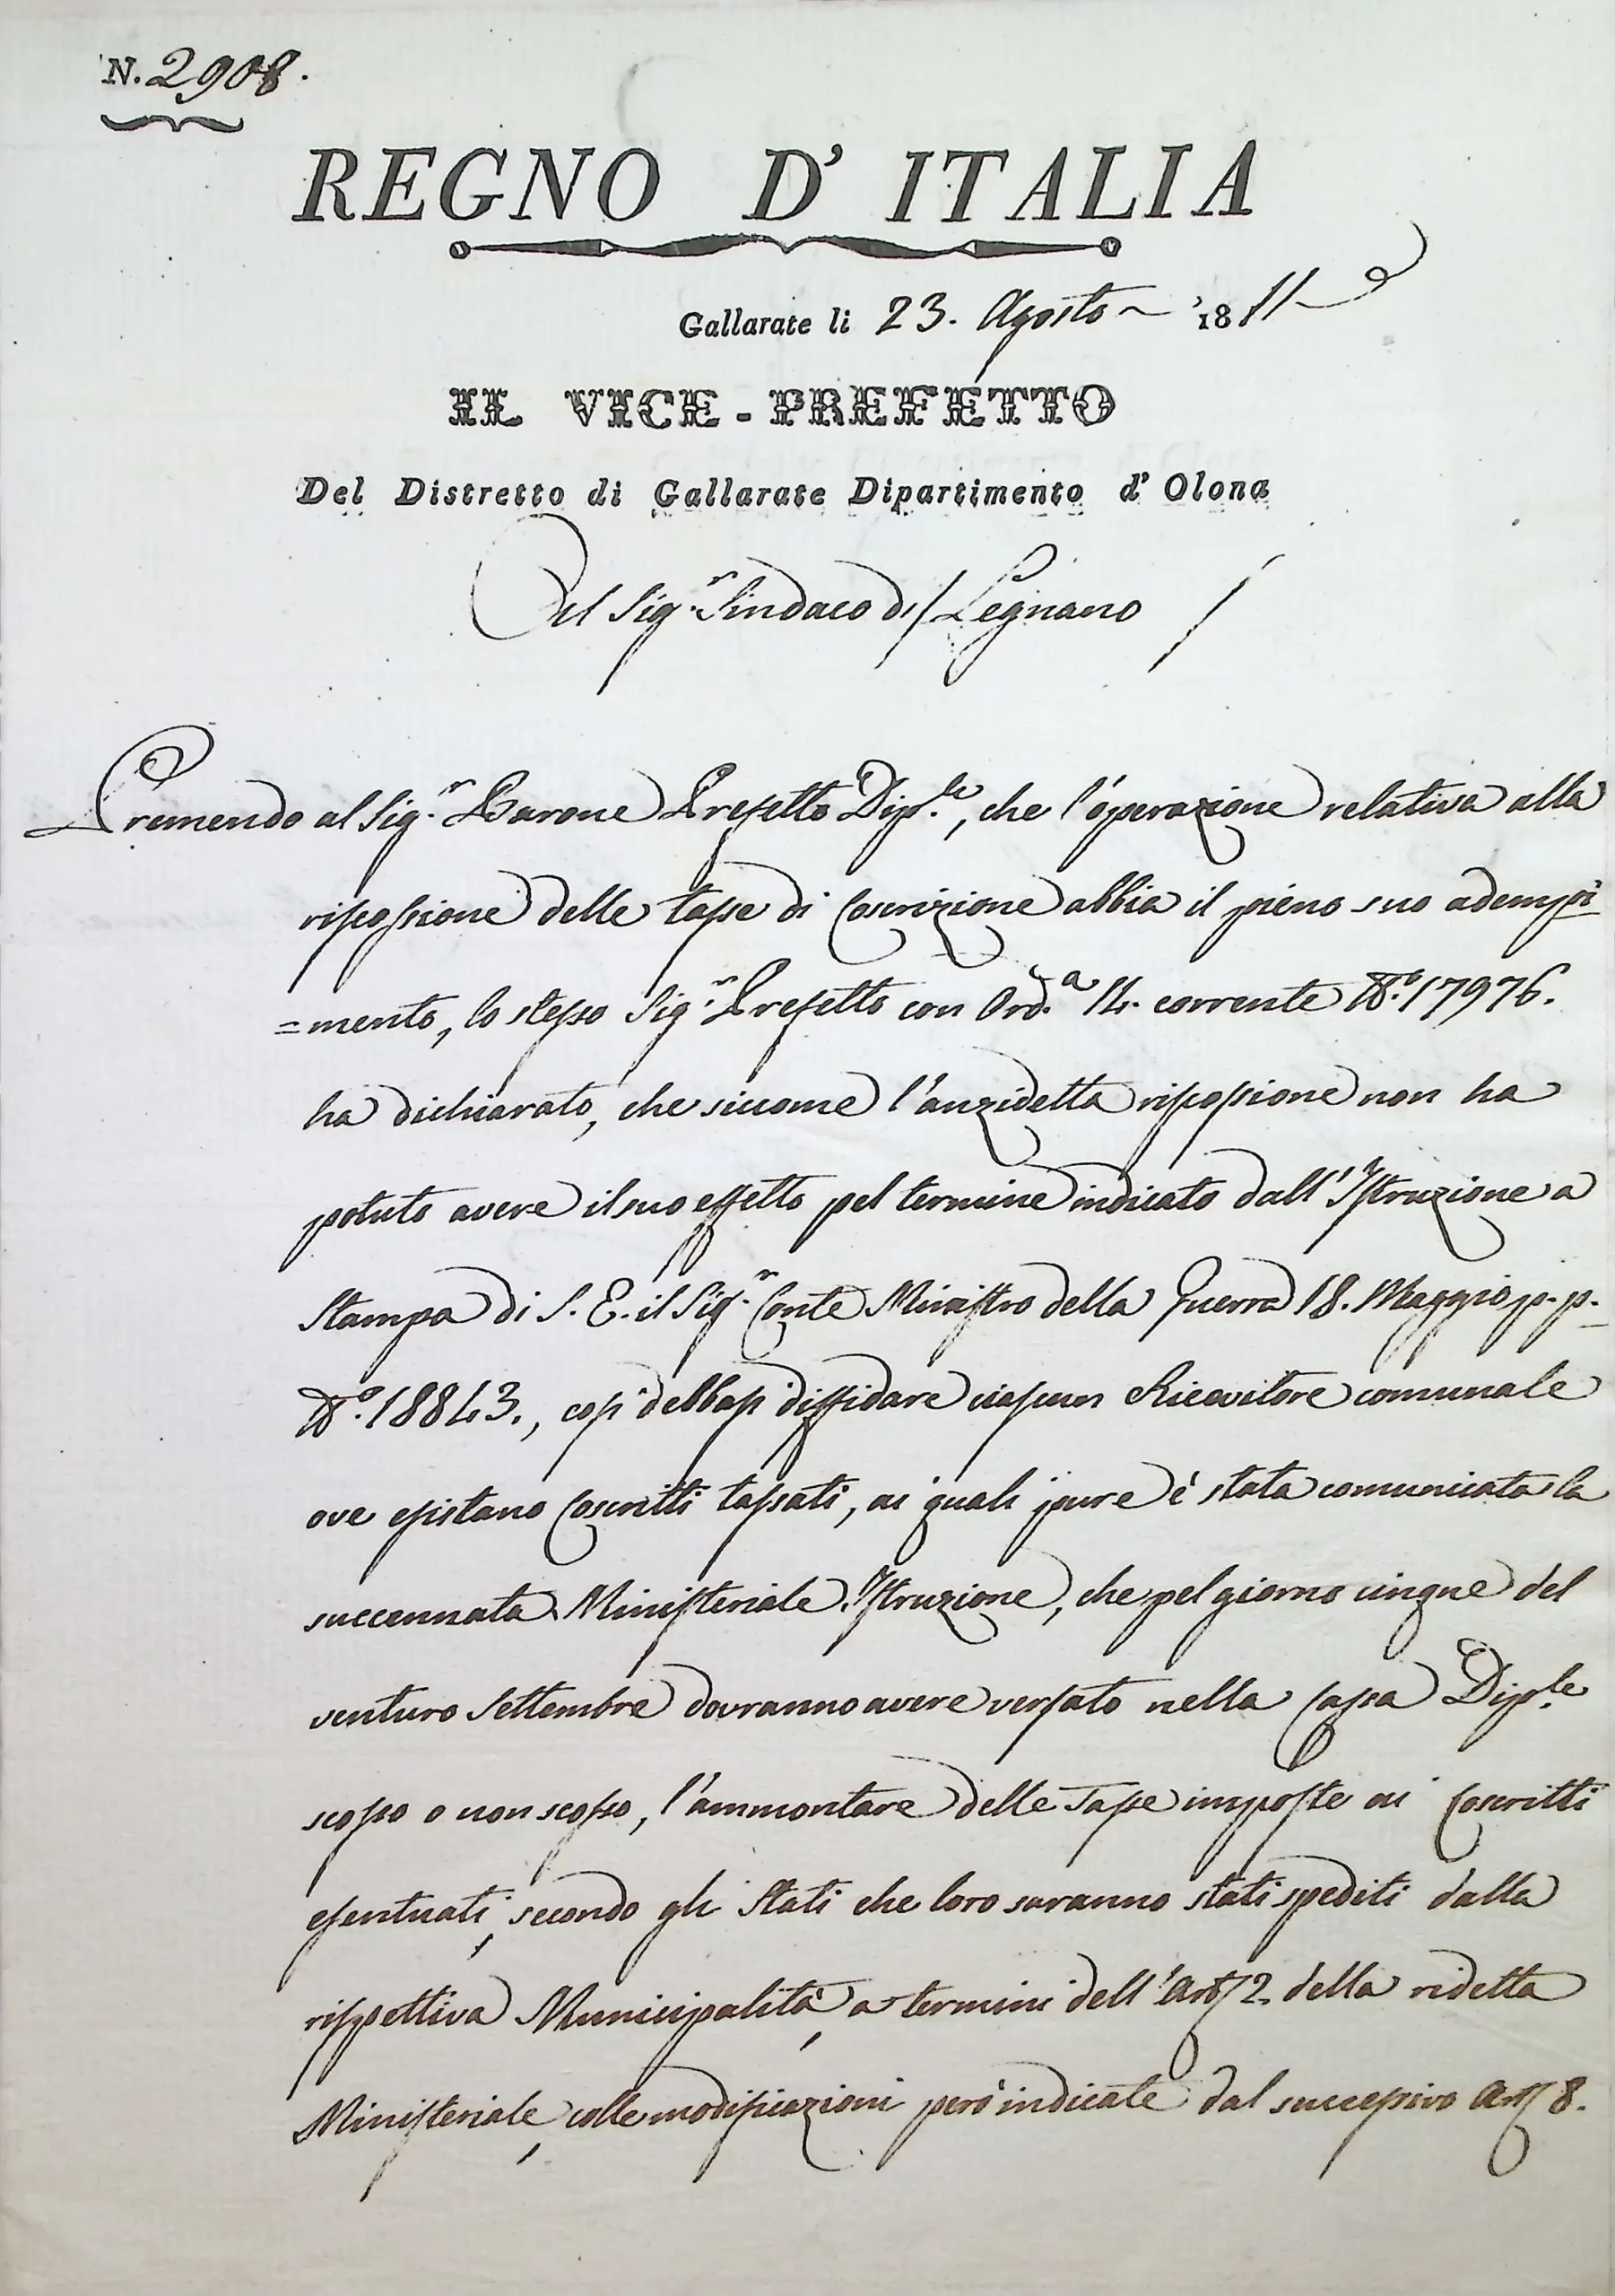 N. 2908.
REGNO D' ITALIA
Gallarate li 23. Agosto 1811
IL VICE-PREFETTO
Del Distretto di Gallarate Dipartimento d' Olona
Al Sig.r Sindaco di Legnano
Premendo al Sig.r Barone Prefetto Dip.le, che l'operazione relativa alla
riscossione delle tasse di Coscrizione abbia il pieno suo adempi
=mento, lo stesso Sig.r Prefetto con Ord.a 14. corrente N.o 17976.
ha dichiarato, che siccome l'anzidetta riscossione non ha
potuto avere il suo effetto pel termine indicato dall'Istruzione a
Stampa di S. E. il Sig.r Conte Ministro della Guerra 18. Maggio p. p.
N.o 18843., così debbasi diffidare ciascun Ricevitore comunale
ove esistano Coscritti tassati, ai quali pure è stata comunicata la
succennata Ministeriale Istruzione, che pel giorno cinque del
venturo Settembre dovranno avere versato nella Cassa Dip.le
scosso o non scosso, l'ammontare delle Tasse imposte ai Coscritti
esentuati, secondo gli Stati che loro saranno stati spediti dalla
rispettiva Municipalità, a termini dell'Art. 2. della ridetta
Ministeriale, colle modificazioni però indicate dal successivo Art. 8.